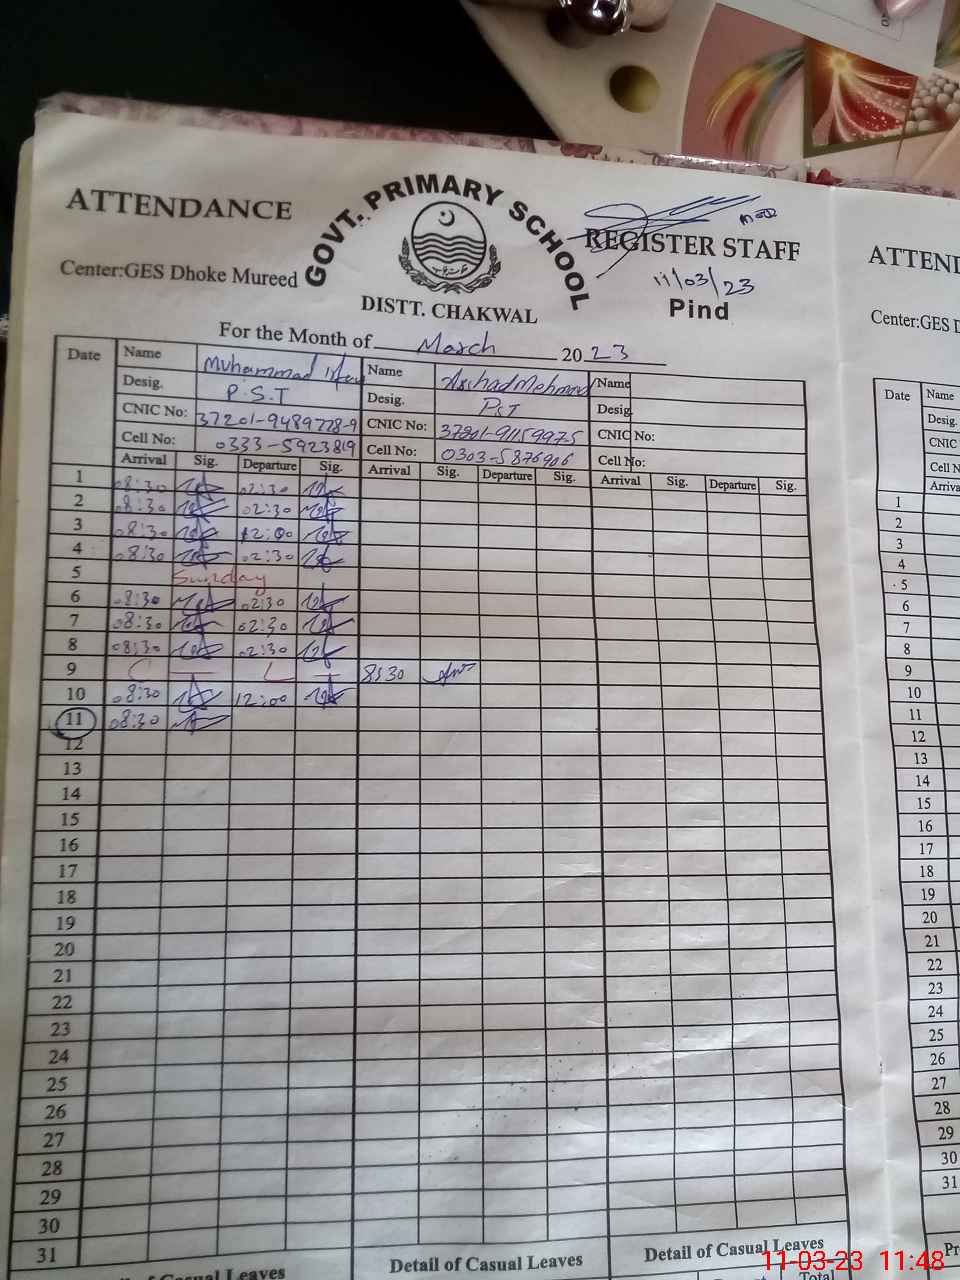 ATTENDANCE
GOVT. PRIMARY SCHOOL
REGISTER STAFF
Center:GES Dhoke Mureed
11/03/23
DISTT. CHAKWAL
Pind
For the Month of March 2023
Date Name Muhammad Name Arshad Mehmood Name
Desig. P.S.T Desig. PST Desig
CNIC No: 37201-9489778-9 CNIC No: CNIC No:
Cell No: 0333-5923819 Cell No: 0303-5876906 Cell No:
Arrival Sig. Departure Sig. Arrival Sig. Departure Sig. Arrival Sig. Departure Sig.
1 08:30 02:30
2 08:30 02:30
3 08:30 12:00
4 08:30 02:30
5 Sunday
6 08:30 02:30
7 08:30 02:30
8 08:30 02:30
9 C L 8:30
10 08:30 12:00
11 08:30
12
13
14
15
16
17
18
19
20
21
22
23
24
25
26
27
28
29
30
31
Detail of Casual Leaves Detail of Casual Leaves Detail of Casual Leaves
Total
ATTEND
Center:GES D
Date Name
Desig.
CNIC
Cell N
Arriva
1
2
3
4
5
6
7
8
9
10
11
12
13
14
15
16
17
18
19
20
21
22
23
24
25
26
27
28
29
30
31
Pr
11-03-23 11:48